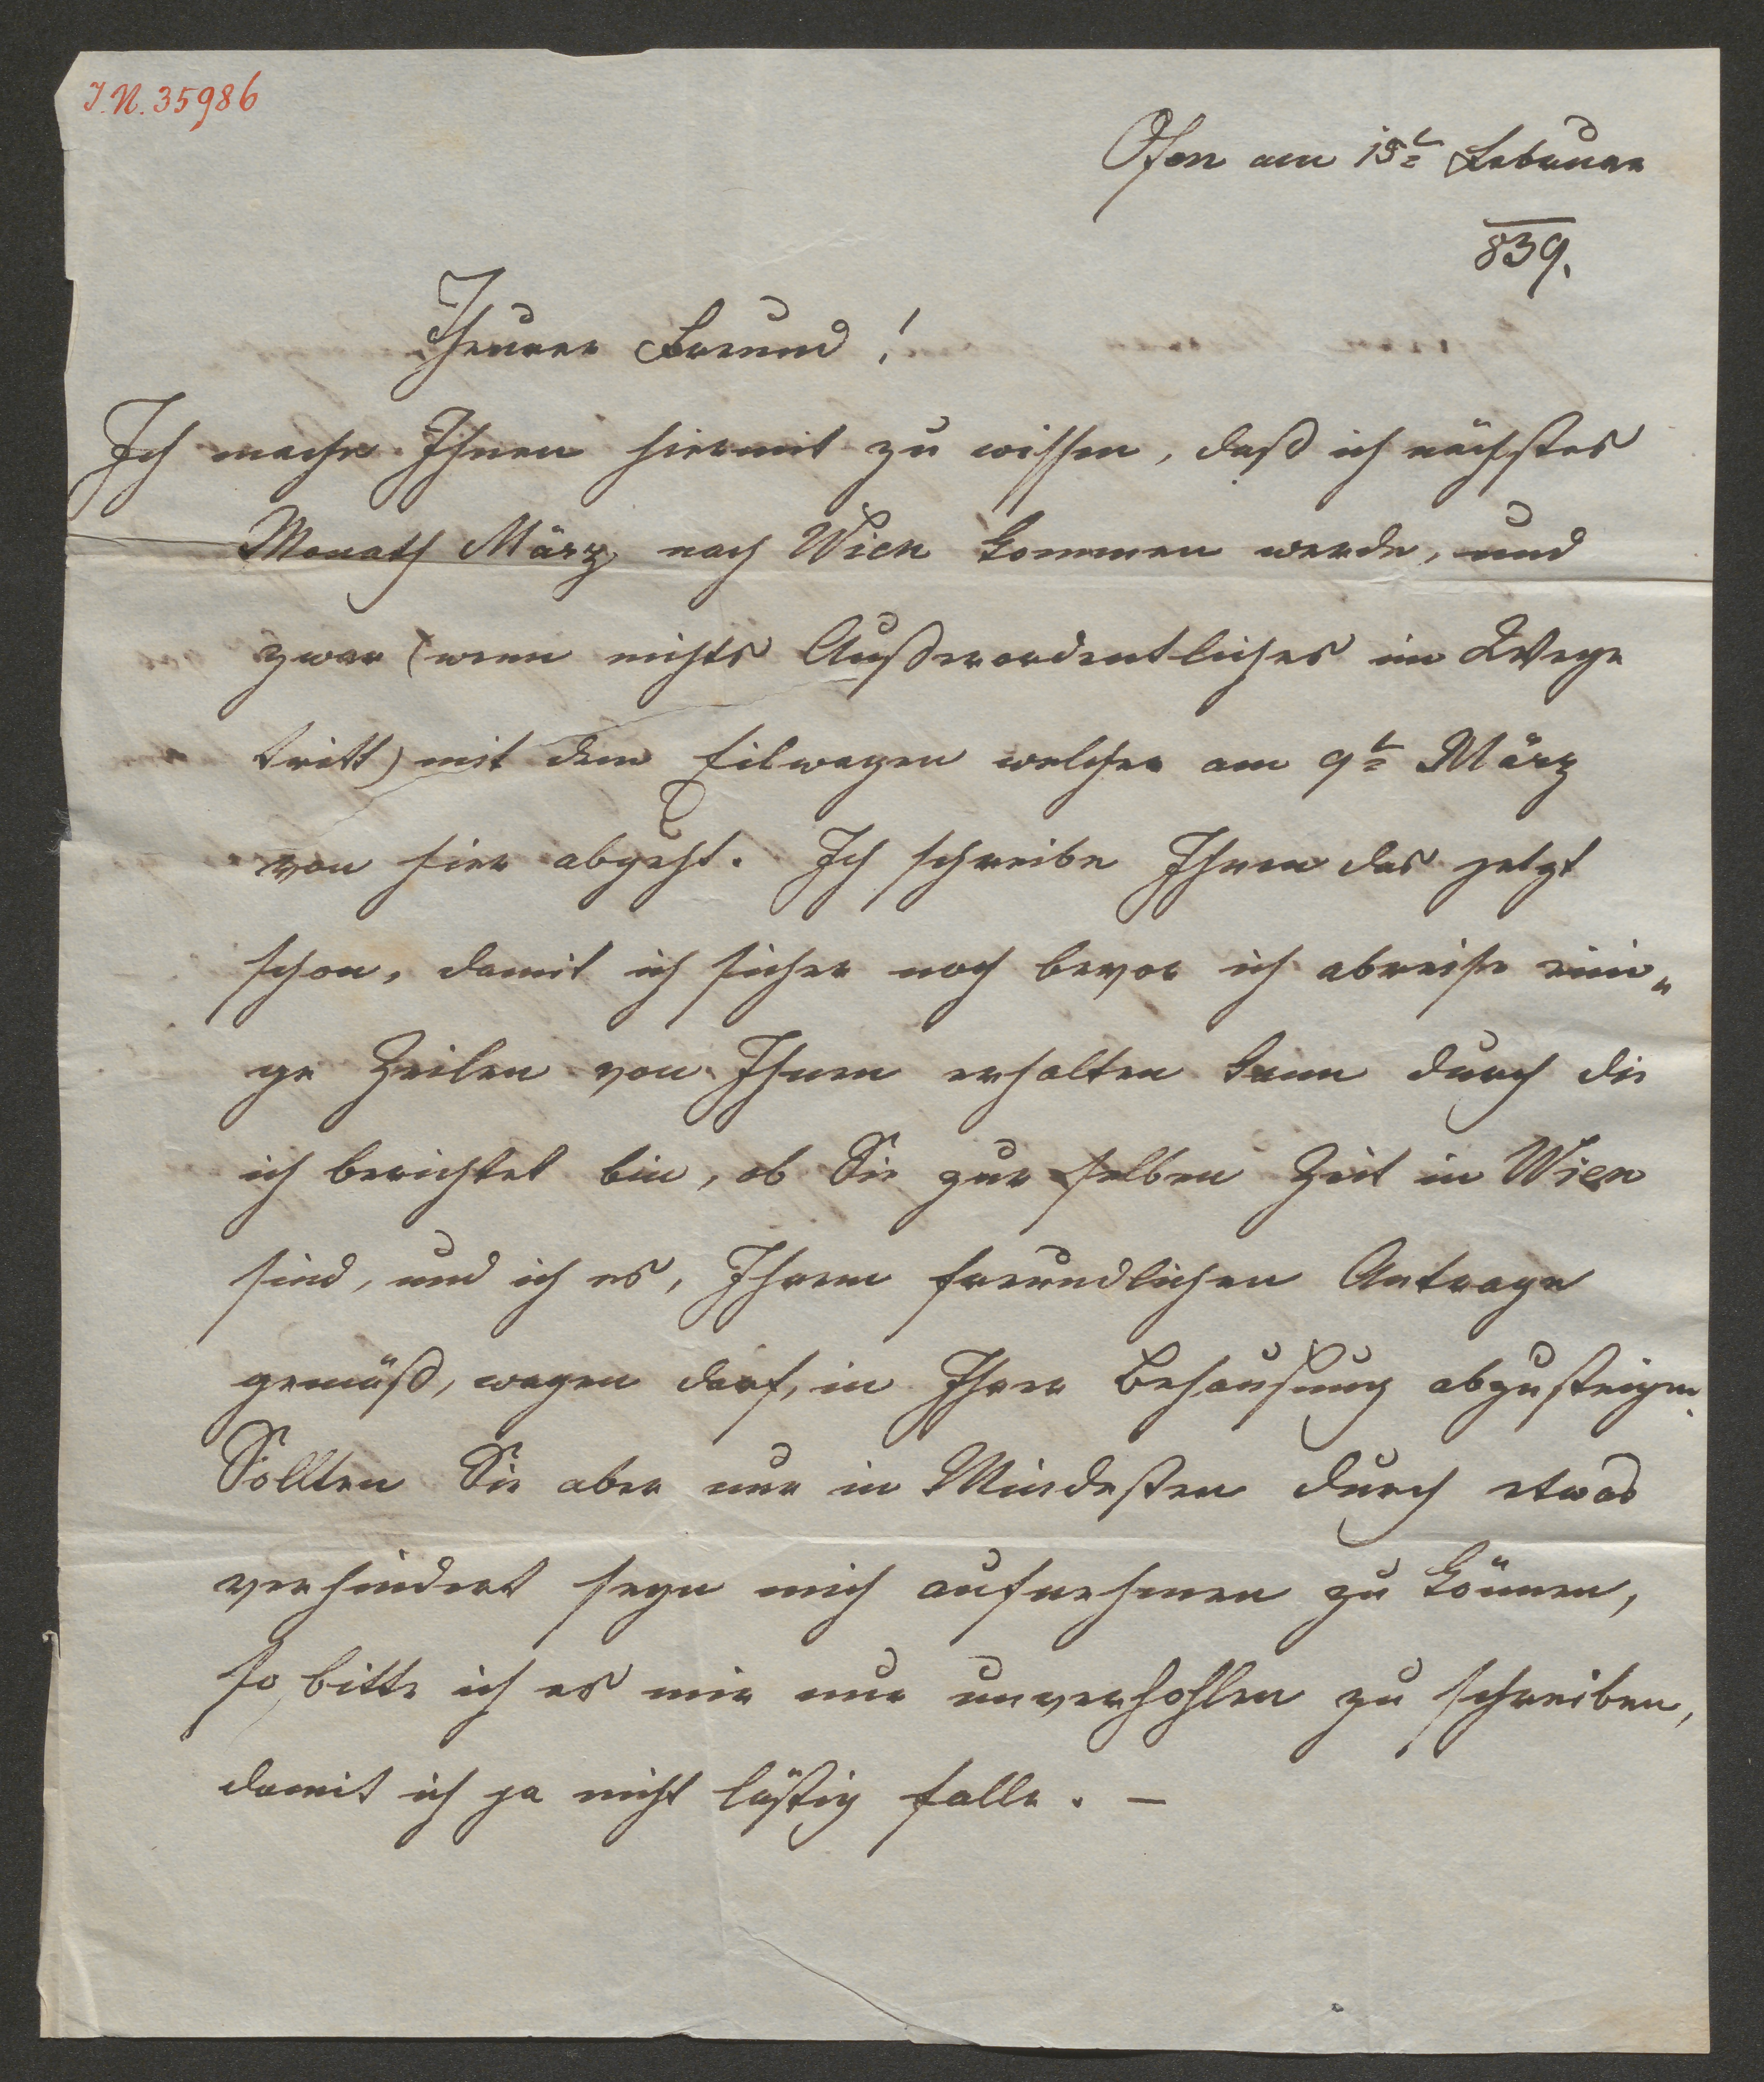 J.N. 35986
Ofen am 15t Februar
839.
Theurer Freund!
Ich mache Ihnen hiermit zu wissen, daß ich nächstes
Monath März nach Wien kommen werde, und
zwar (wenn nichts Außerordentliches im Wege
tritt) mit dem Eilwagen welcher am 9t März
von hier abgeht. Ich schreibe Ihnen das jetzt
schon, damit ich sicher noch bevor ich abreise eini„
ge Zeilen von Ihnen erhalten kann durch die
ich berichtet bin, ob Sie zur selben Zeit in Wien
sind, und ich es, Ihrem freundlichen Antrage
gemäß, wagen darf, in Ihrer Behausung abzusteigen.
Sollten Sie aber nur in Mindesten durch etwas
verhindert seyn mich aufnehmen zu können,
so bitte ich es mir nur unverhohlen zu schreiben,
damit ich ja nicht lästig falle. —